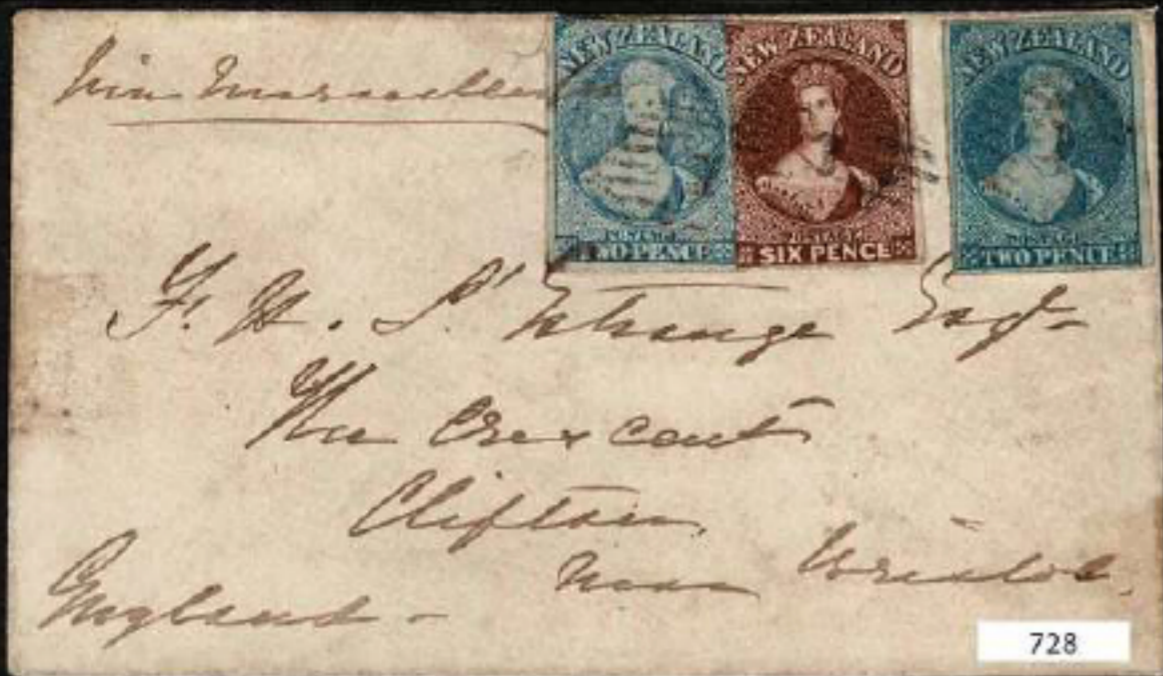 via Marseilles
NEW ZEALAND
POSTAGE
TWO PENCE
NEW ZEALAND
POSTAGE
SIX PENCE
NEW ZEALAND
POSTAGE
TWO PENCE
F. H. L'Estrange Esqr
The Crescent
Clifton,
Near Bristol,
England
728